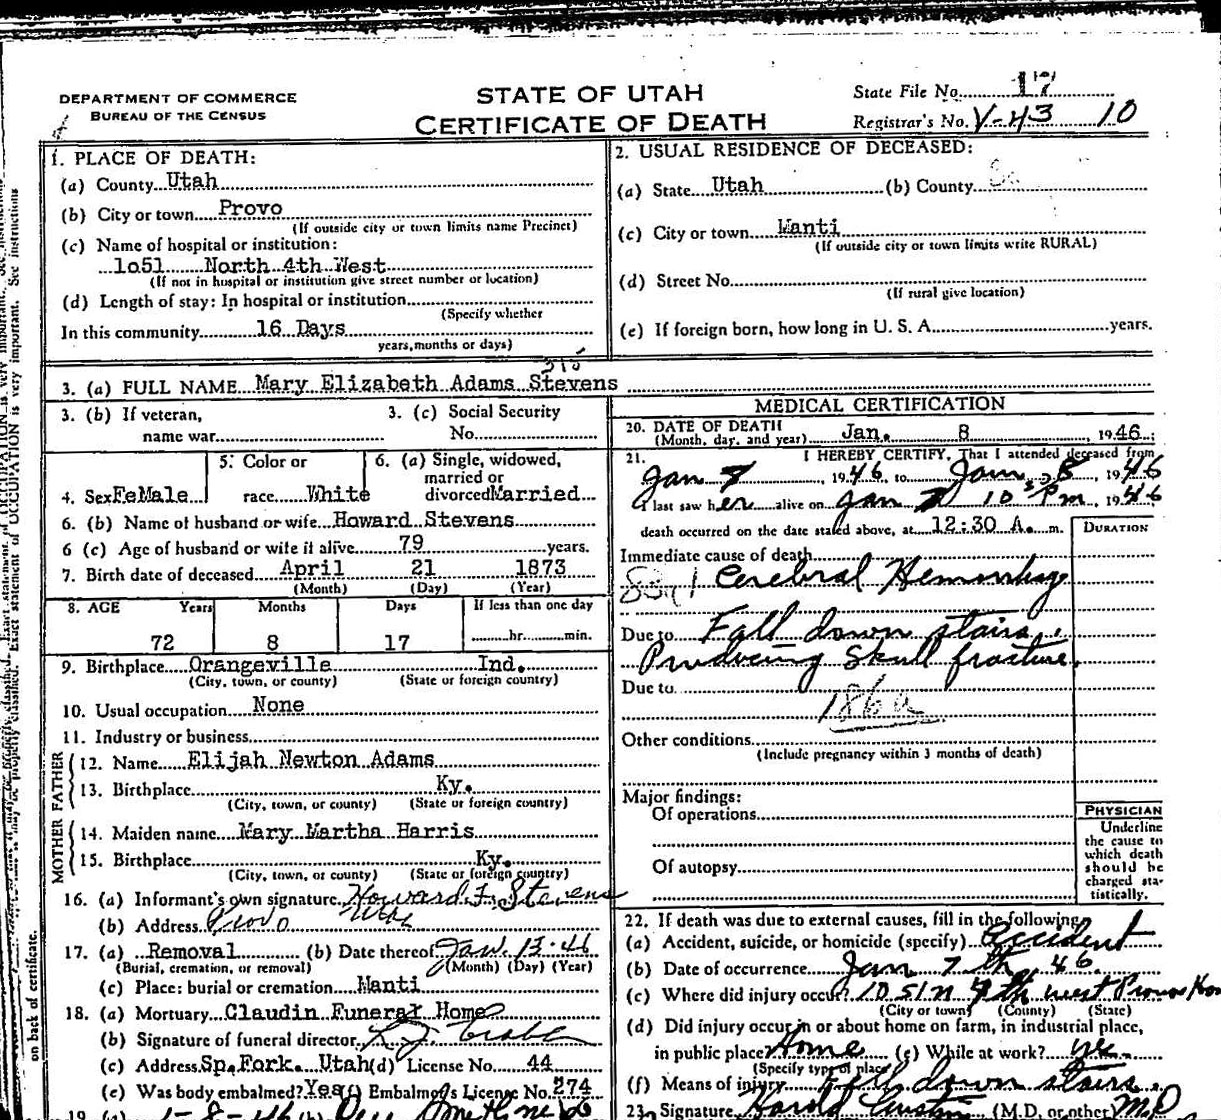 DEPARTMENT OF COMMERCE
BUREAU OF THE CENSUS
STATE OF UTAH
CERTIFICATE OF DEATH
State File No. 17
Registrar's No. V-43 10
1. PLACE OF DEATH:
(a) County Utah
(b) City or town Provo
(If outside city or town limits name Precinct)
(c) Name of hospital or institution:
1o51 North 4th West
(If not in hospital or institution give street number or location)
(d) Length of stay: In hospital or institution
(Specify whether
In this community 16 Days
years, months or days)
2. USUAL RESIDENCE OF DECEASED:
(a) State Utah (b) County
(c) City or town Manti
(If outside city or town limits write RURAL)
(d) Street No.
(If rural give location)
(e) If foreign born, how long in U. S. A. years.
3. (a) FULL NAME Mary Elizabeth Adams Stevens
3. (b) If veteran,
name war
3. (c) Social Security
No.
4. Sex FeMale
5. Color or
race White
6. (a) Single, widowed,
married or
divorced Married
6. (b) Name of husband or wife Howard Stevens
6 (c) Age of husband or wife if alive 79 years.
7. Birth date of deceased April 21 1873
(Month) (Day) (Year)
8. AGE Years Months Days If less than one day
72 8 17 hr. min.
9. Birthplace Orangeville Ind.
(City, town, or county) (State or foreign country)
10. Usual occupation None
11. Industry or business
FATHER
12. Name Elijah Newton Adams
13. Birthplace Ky.
(City, town, or county) (State or foreign country)
MOTHER
14. Maiden name Mary Martha Harris
15. Birthplace Ky.
(City, town, or county) (State or foreign country)
16. (a) Informant's own signature Howard F. Stevens
(b) Address Provo Utah
17. (a) Removal (b) Date thereof Jan. 13-46
(Burial, cremation, or removal) (Month) (Day) (Year)
(c) Place: burial or cremation Manti
18. (a) Mortuary Claudin Funeral Home
(b) Signature of funeral director
(c) Address Sp.Fork. Utah (d) License No. 44
(e) Was body embalmed? Yes (f) Embalmer's License No. 274
19. (a) 1-8-46 (b)
MEDICAL CERTIFICATION
20. DATE OF DEATH
(Month, day, and year) Jan. 8, 1946
21. I HEREBY CERTIFY, That I attended deceased from
Jan 7, 1946, to Jan 8, 1946
I last saw her alive on Jan 7 10 Pm, 1946
death occurred on the date stated above, at 12:30 A. m.
DURATION
Immediate cause of death
Cerebral Hemorrhage
Due to Fall down stairs,
Producing Skull fracture.
Due to
186a
Other conditions
(Include pregnancy within 3 months of death)
Major findings:
Of operations
Of autopsy
PHYSICIAN
Underline
the cause to
which death
should be
charged sta-
tistically.
22. If death was due to external causes, fill in the following:
(a) Accident, suicide, or homicide (specify) Accident
(b) Date of occurrence Jan 7th 46
(c) Where did injury occur? 1051 N 4th west Provo
(City or town) (County) (State)
(d) Did injury occur in or about home on farm, in industrial place,
in public place? Home (e) While at work? yes
(Specify type of place)
(f) Means of injury Fell down stairs.
23. Signature Harold Austin (M.D. or other) M.D.
on back of certificate.